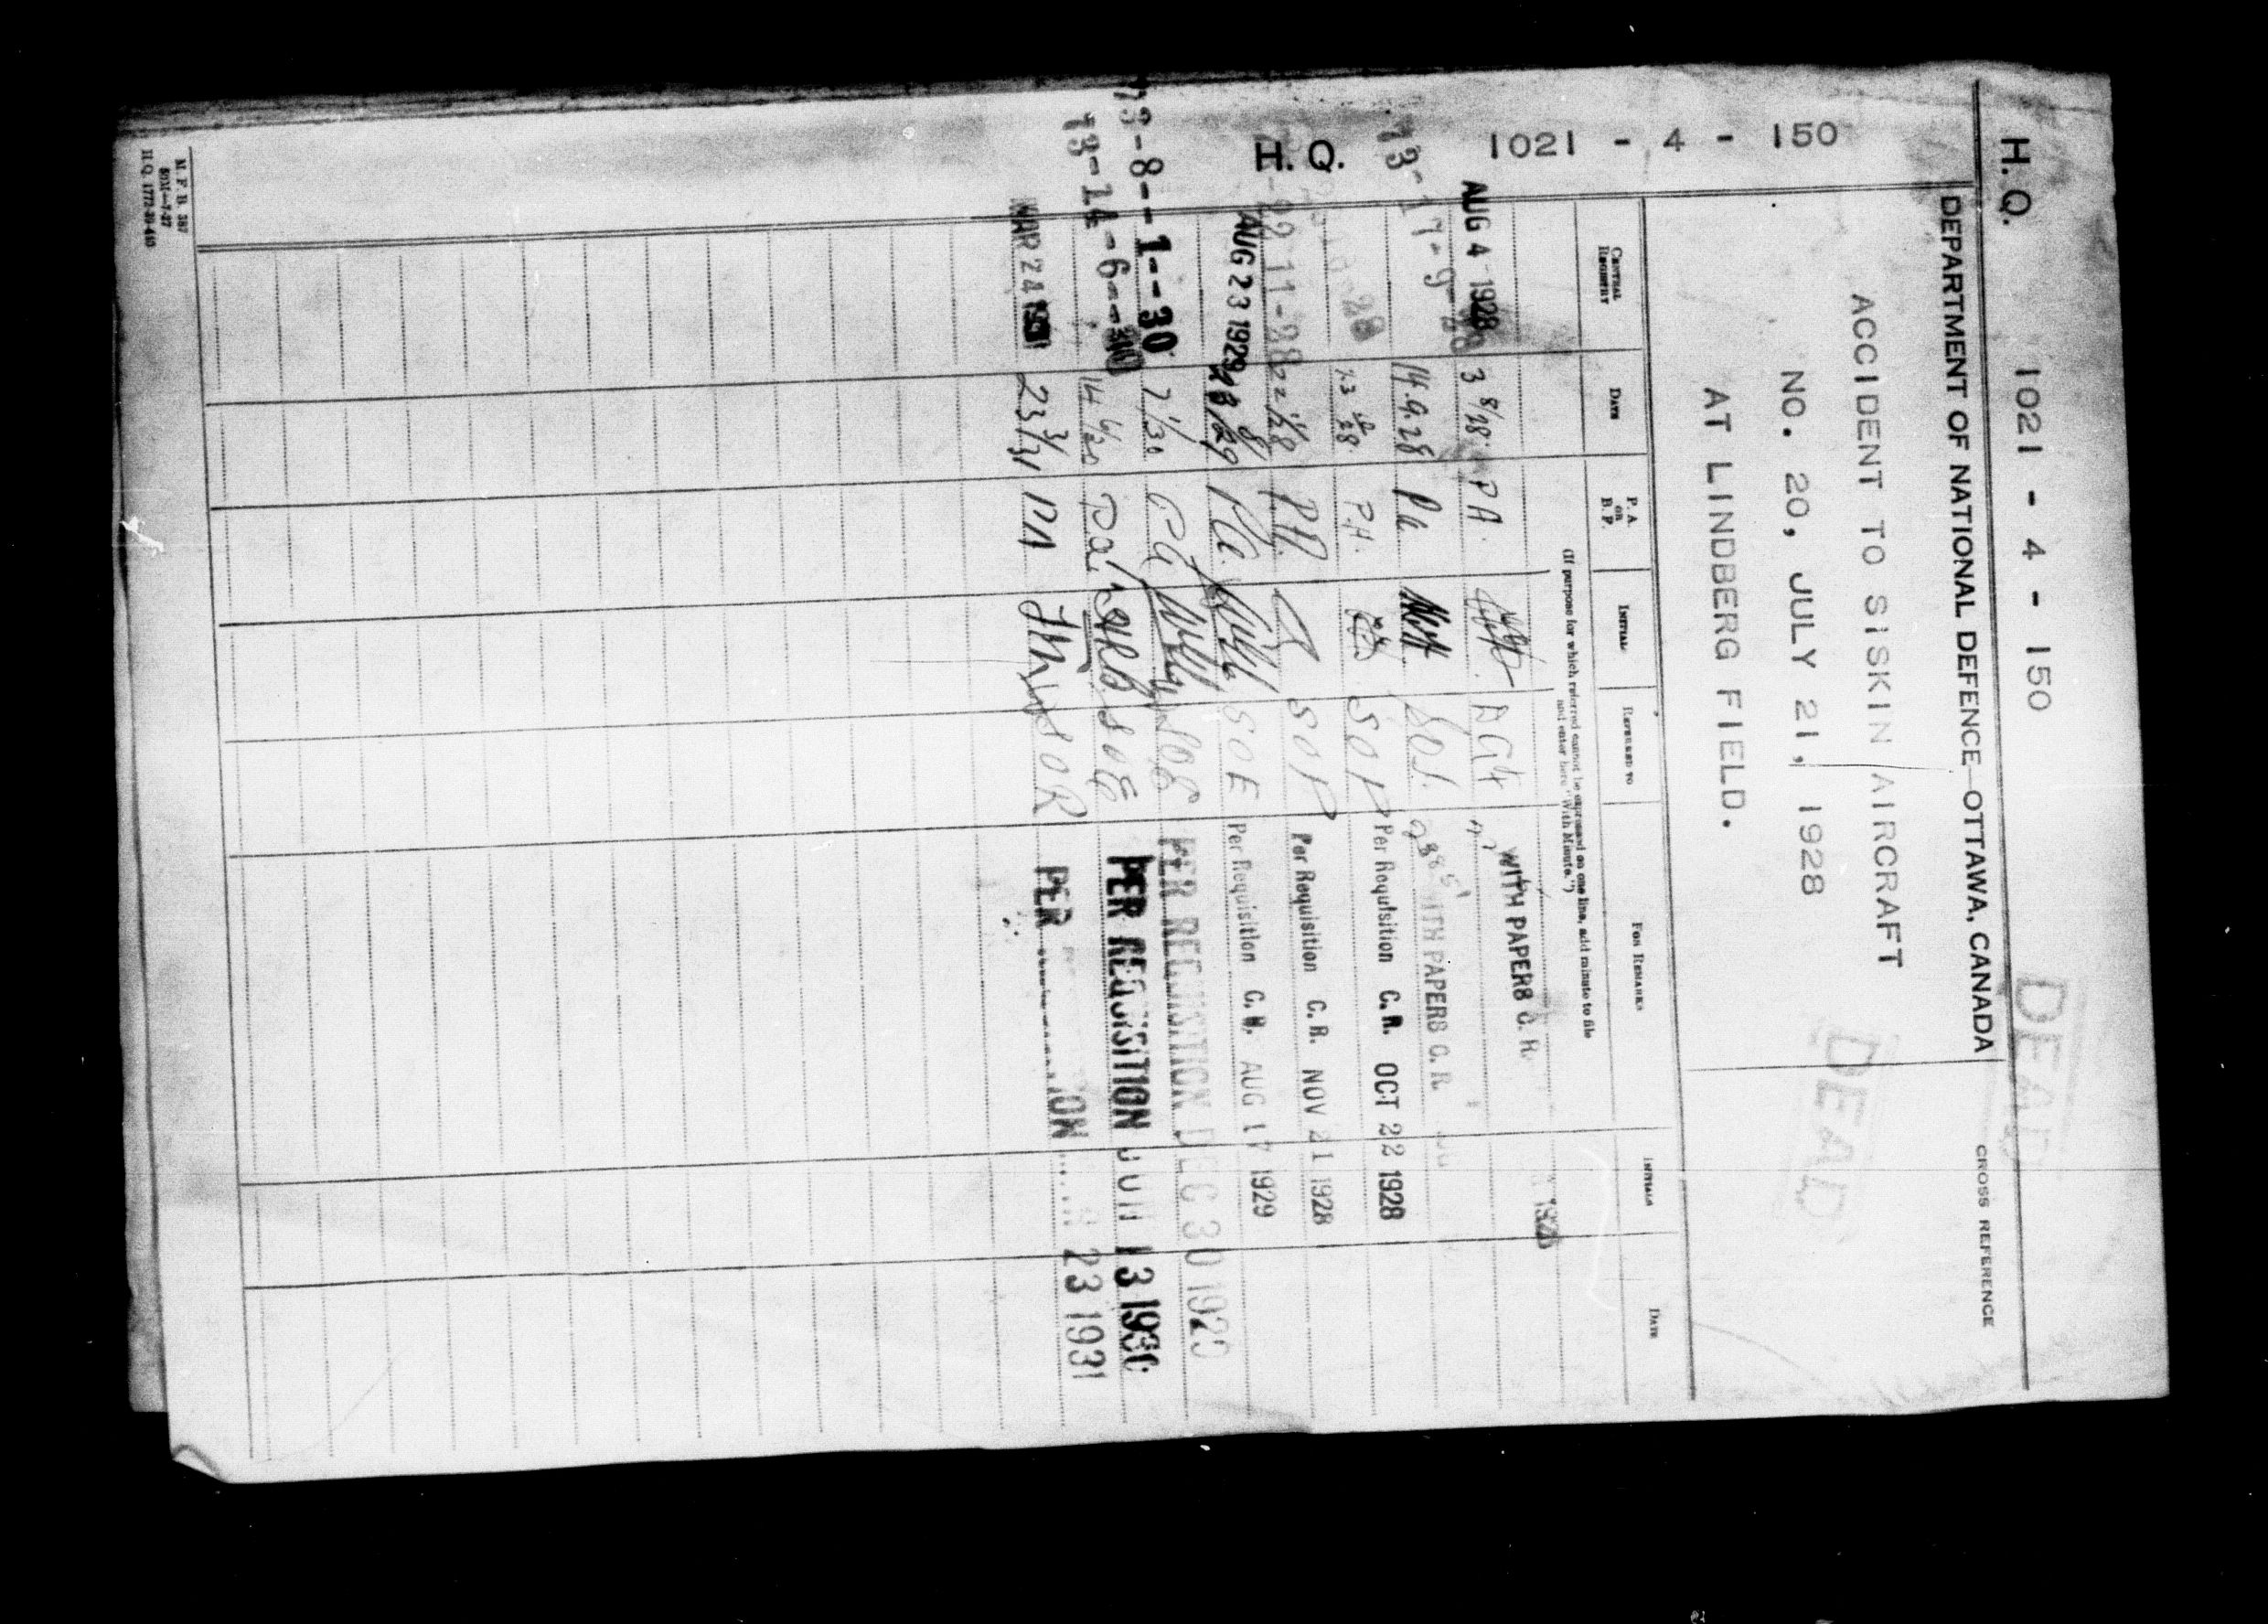 H. Q. 1021 - 4 - 150
DEAD
DEPARTMENT OF NATIONAL DEFENCE—OTTAWA, CANADA
CROSS REFERENCE
ACCIDENT TO SISKIN AIRCRAFT
NO. 20, JULY 21, 1928
AT LINDBERG FIELD.
DEAD
H. Q. 1021 - 4 - 150
CENTRAL REGISTRY
DATE
P. A. or B. F.
INITIAL
REFERRED TO
FOR REMARKS
INITIALS
DATE
(If purpose for which referred cannot be expressed on one line, add minute to file
and enter here, "With Minute.")
WITH PAPERS C. R. 1928
AUG 4 1928 3 8/28 P A.
73-17-9-28 14.9.28 Pa WITH PAPERS C. R.
23 10/28 P.A. SOP Per Requisition C. R. OCT 22 1928
22 11-28 22 11/28 P.A. SOP Per Requisition C. R. NOV 21 1928
AUG 23 1929 8/29 PA. SOE Per Requisition C. R. AUG 17 1929
73-8--1--30 7 1/30 PA SOE PER REQUISITION DEC 30 1929
73-14-6--30 14 6/30 Pa SOE PER REQUISITION JUN 13 1930
MAR 24 1931 23 3/31 PA SOR PER 23 1931
M. F. B. 387
50M—7-27
H.Q. 1772-39-440